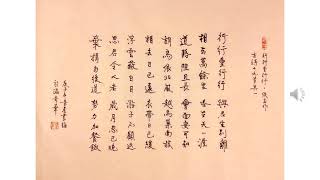 行行重行行 佚名作
古詩十九首其一
行行重行行 與君生別離
相去萬餘里 各在天一涯
道路阻且長 會面安可知
胡馬依北風 越鳥巢南枝
相去日已遠 衣帶日已緩
浮雲蔽白日 游子不顧返
思君令人老 歲月忽已晚
棄捐勿復道 努力加餐飯